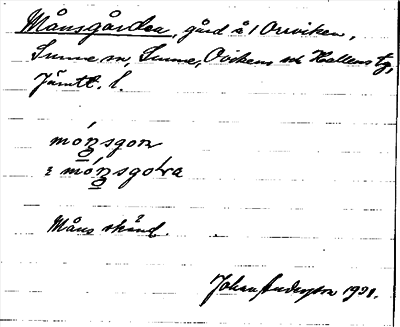 Månsgården, gård å 1 Orrviken,
Sunne sn, Sunne, Oviken och Hallens tg,
Jämtl. l.
mónsgon
i mónsgoɫra
Måns okänd.
Johan Anderson 1931.